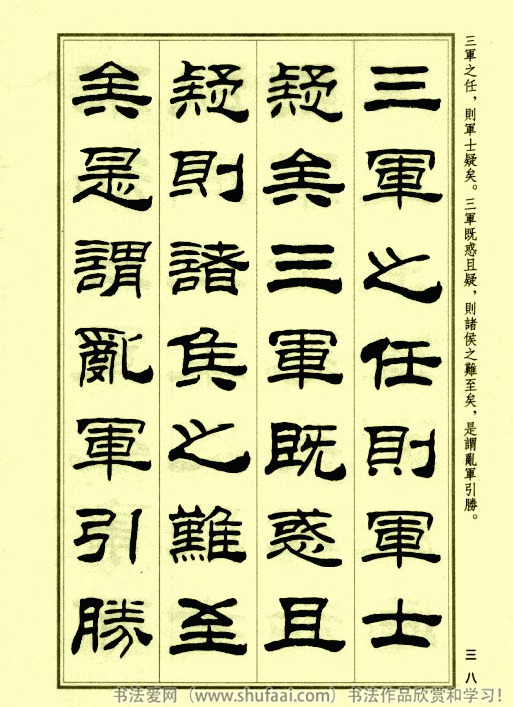 三軍之任，則軍士疑矣。三軍既惑且疑，則諸侯之難至矣，是謂亂軍引勝。
三軍之任則軍士
疑矣三軍既惑且
疑則諸侯之難至
矣是謂亂軍引勝
三八
书法爱网（www.shufaai.com）书法作品欣赏和学习！